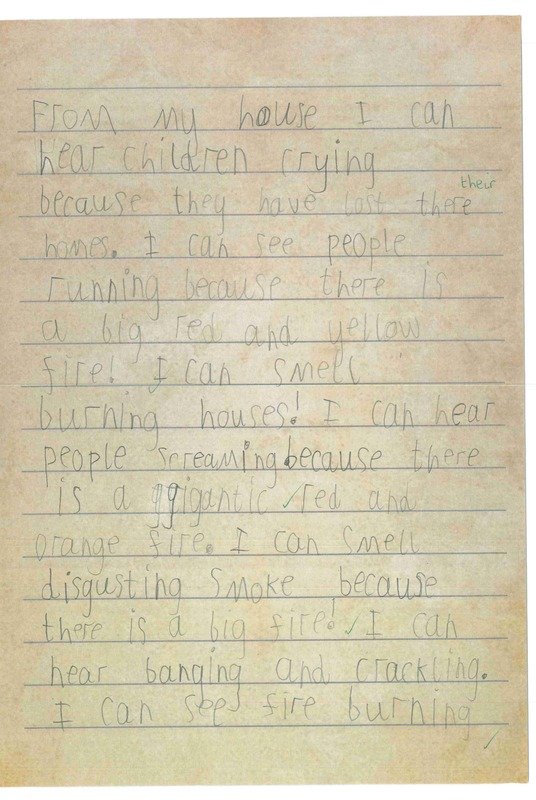 From my house I can
hear children crying
their
because they have lost there
homes. I can see people
running because there is
a big red and yellow
fire! I can smell
burning houses! I can hear
people screaming because there
is a ggigantic ✓ red and
orange fire. I can smell
disgusting smoke because
there is a big fire! ✓ I can
hear banging and crackling.
I can see fire burning
✓